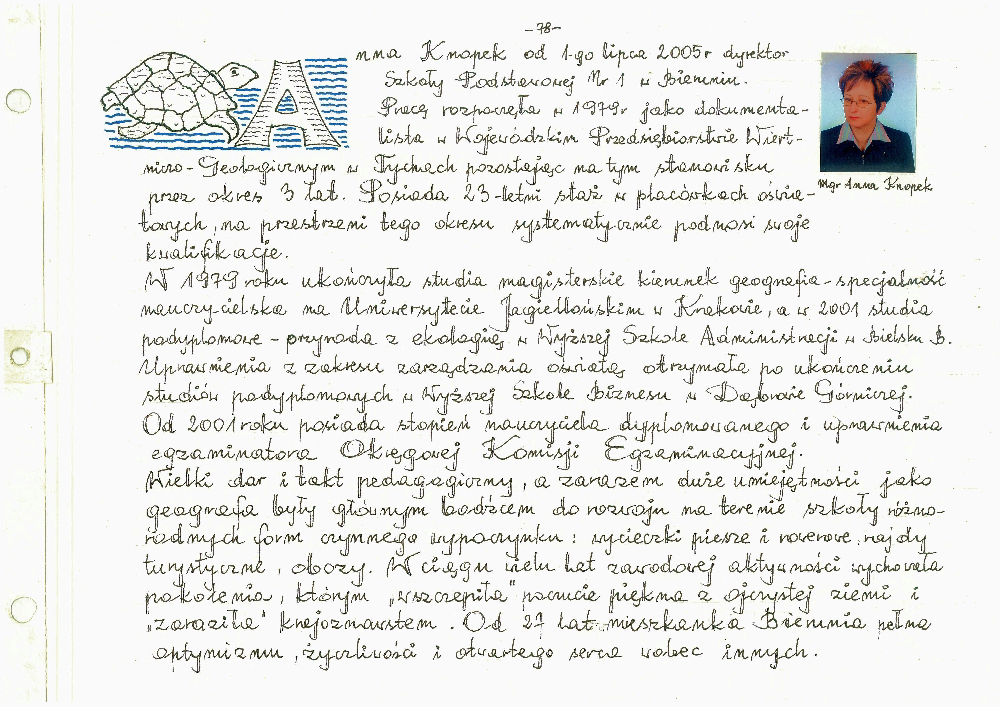 -78-
Anna Knopek od 1-go lipca 2005r dyrektor
Szkoły Podstawowej Nr 1 w Bieruniu.
Pracę rozpoczęła w 1979r jako dokumenta-
lista w Wojewódzkim Przedsiębiorstwie Wiert-
niczo-Geologicznym w Tychach pozostając na tym stanowisku
przez okres 3 lat. Posiada 23-letni staż w placówkach oświa-
towych, na przestrzeni tego okresu systematycznie podnosi swoje
kwalifikacje.
mgr Anna Knopek
W 1979 roku ukończyła studia magisterskie kierunek geografia - specjalność
nauczycielska na Uniwersytecie Jagiellońskim w Krakowie, a w 2001 studia
podyplomowe - przyroda z ekologią w Wyższej Szkole Administracji w Bielsku B.
Uprawnienia z zakresu zarządzania oświatą otrzymała po ukończeniu
studiów podyplomowych w Wyższej Szkole Biznesu w Dąbrowie Górniczej.
Od 2001 roku posiada stopień nauczyciela dyplomowanego i uprawnienia
egzaminatora Okręgowej Komisji Egzaminacyjnej.
Wielki dar i takt pedagogiczny, a zarazem duże umiejętności jako
geografa były głównym bodźcem do rozwoju na terenie szkoły różno-
rodnych form czynnego wypoczynku: wycieczki piesze i rowerowe, rajdy
turystyczne, obozy. W ciągu wielu lat zawodowej aktywności wychowała
pokolenia, którym „wszczepiła" poczucie piękna z ojczystej ziemi i
„zaraziła" krajoznawstem. Od 27 lat mieszkanka Bierunia pełna
optymizmu, życzliwości i otwartego serca wobec innych.